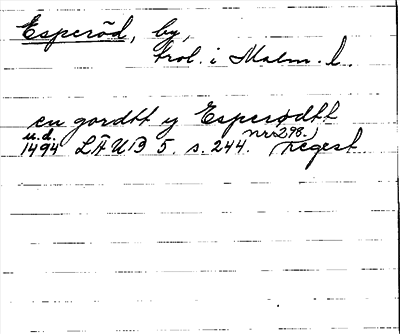 Esperöd, by,
trol. i Malm. l.
en gordtt y Esperødtt
u.d.
1494 LÄUB 5. s. 244. nr 298. (regest)